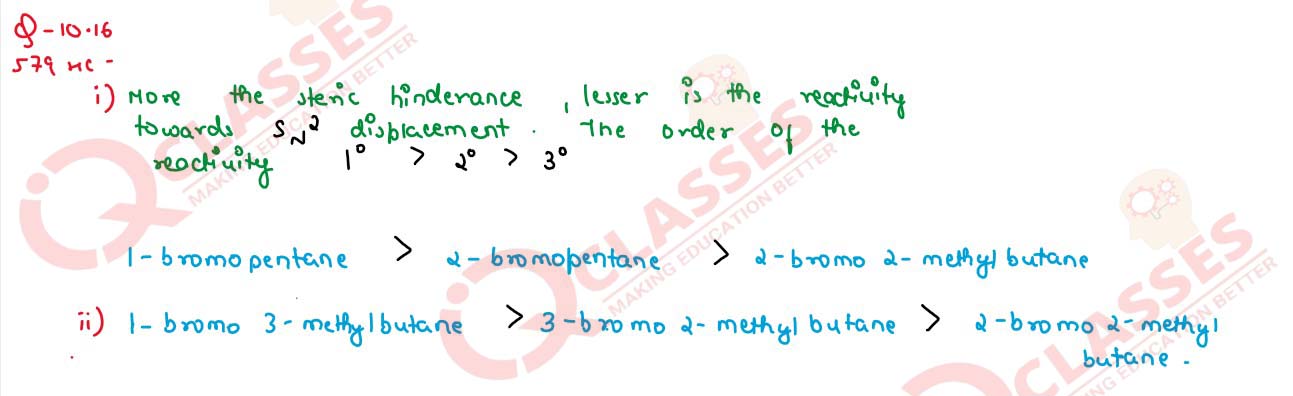 Q-10.16
579 HC -
i) More the steric hinderance, lesser is the reactivity
towards SN2 displacement. The order of the
reactivity 1° > 2° > 3°
1-bromopentane > 2-bromopentane > 2-bromo 2-methyl butane
ii) 1-bromo 3-methylbutane > 3-bromo 2-methyl butane > 2-bromo 2-methyl
butane.
CLASSES
MAKING EDUCATION BETTER
CLASSES
MAKING EDUCATION BETTER
CLASSES
MAKING EDUCATION BETTER